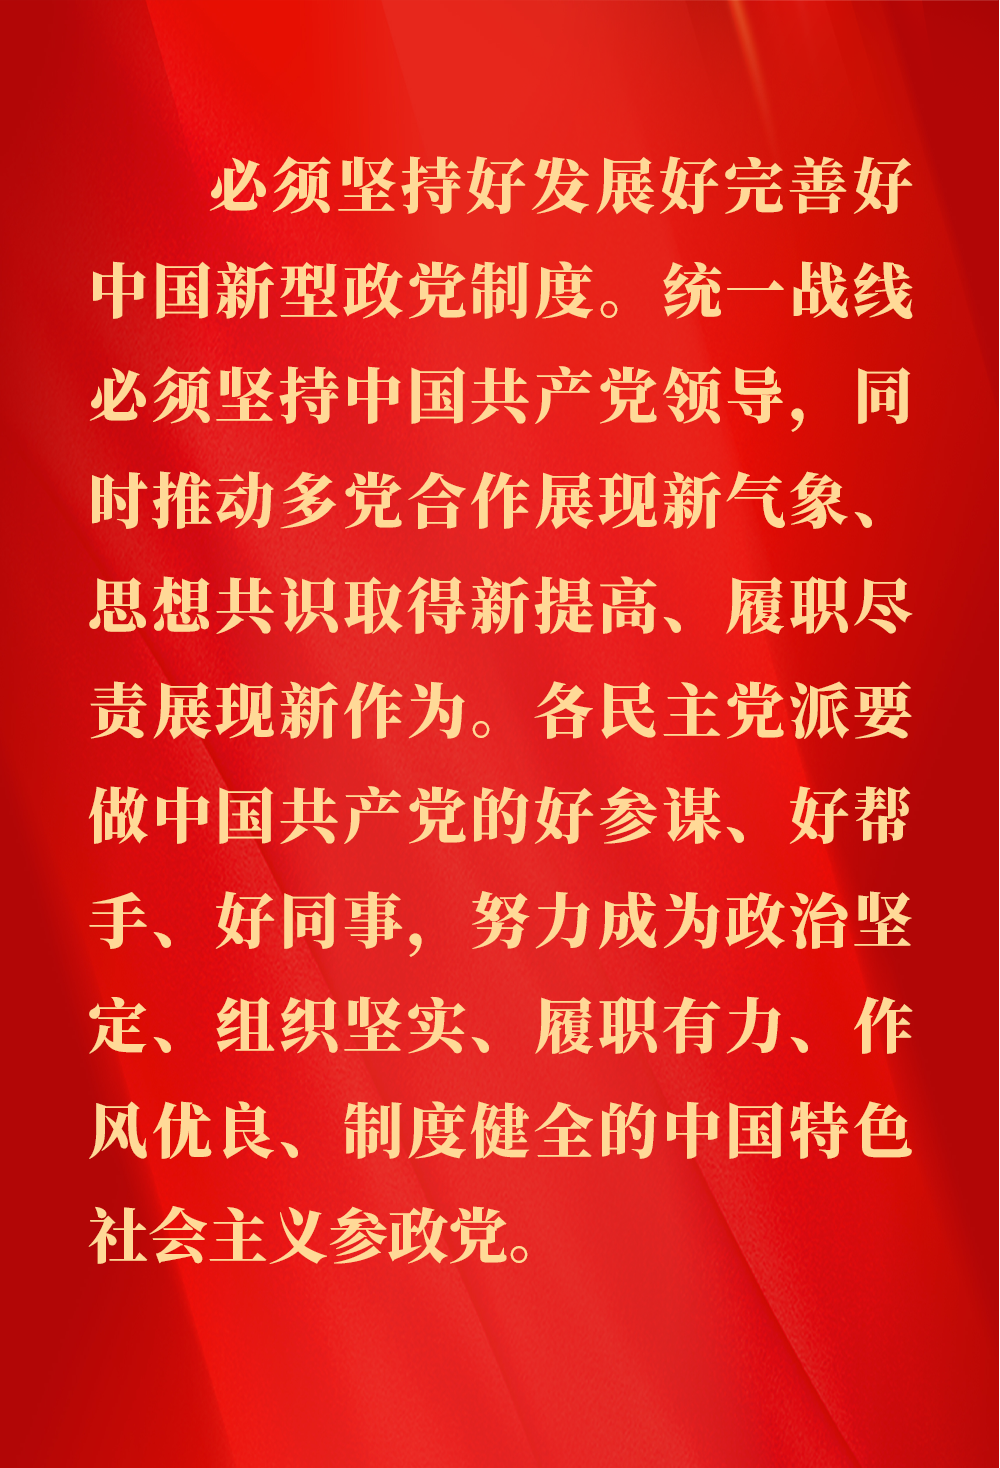 必须坚持好发展好完善好
中国新型政党制度。统一战线
必须坚持中国共产党领导，同
时推动多党合作展现新气象、
思想共识取得新提高、履职尽
责展现新作为。各民主党派要
做中国共产党的好参谋、好帮
手、好同事，努力成为政治坚
定、组织坚实、履职有力、作
风优良、制度健全的中国特色
社会主义参政党。